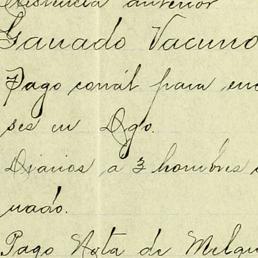 Existencia anterior
Ganado Vacuno
Pago corral para enc
ses en Dgo.
Diarios a 3 hombres
nado.
Pago Nota de Melqu